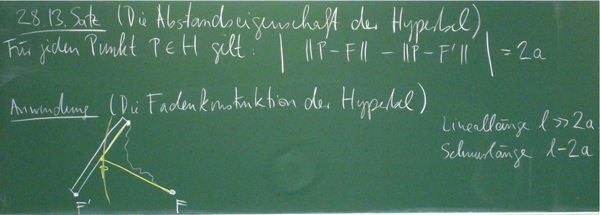 28.13. Satz (Die Abstandseigenschaft der Hyperbel)
Für jeden Punkt P ∈ H gilt: | ||P-F|| - ||P-F'|| | = 2a
Anwendung (Die Fadenkonstruktion der Hyperbel)
Lineallänge l >> 2a
Schnurlänge l-2a
P
F'
F